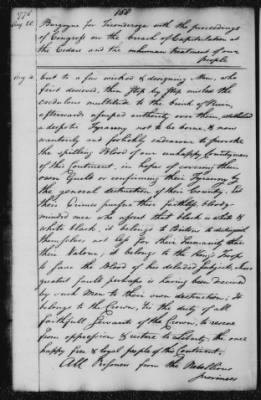 158
1776
Burgoyne for Ticonderoga with the proceedings
of Congress on the breach of Capitulation at
the Cedars and the inhuman treatment of our
People
Aug
but to a few wicked & designing Men, who
first deceived, then step by step misled the
credulous multitude to the brink of Ruin,
afterwards usurped authority over them, established
a despotic Tyranny not to be borne, & now
wantonly and foolishly endeavour to provoke
the spilling Blood of our unhappy Countrymen
of this Continent, in hopes of covering their
own Guilt or confirming their Tyranny by
the general destruction of their Country, let
their Crimes pursue their faithless, bloody-
minded men who assert that black is white &
white black; it belongs to Britons to distinguish
themselves not less for their humanity than
their Valour; it belongs to the Kings Troops
to save the Blood of his deluded Subjects whose
greatest fault perhaps is having been deceived
by such Men to their own destruction; it
belongs to the Crown, tis the duty of all
faithfull Servants of the Crown, to rescue
from oppression & restore to Liberty the once
happy free & loyal people of this Continent.
All Prisoners from the Rebellious
Provinces